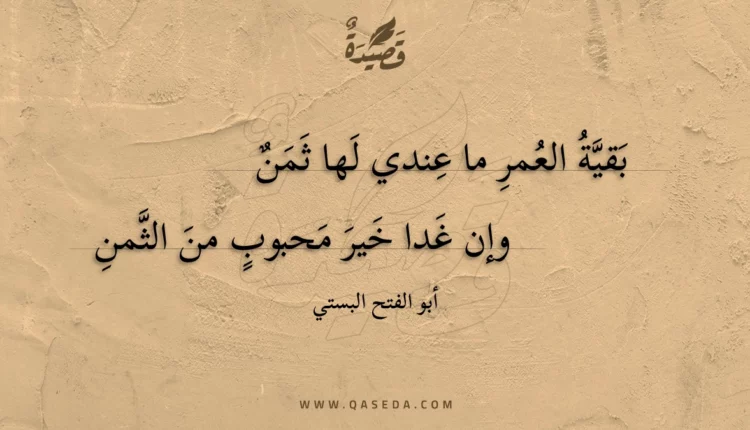 قَصِيدَةٌ
بَقيَّةُ العُمرِ ما عِندي لَها ثَمَنٌ
وإن غَدا خَيرَ مَحبوبٍ منَ الثَّمنِ
أبو الفتح البستي
WWW.QASEDA.COM